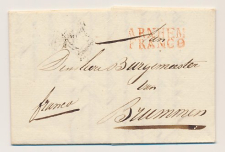 ARNHEM
FRANCO
Aan
den Heere Burgemeester
van
Brummen
franco